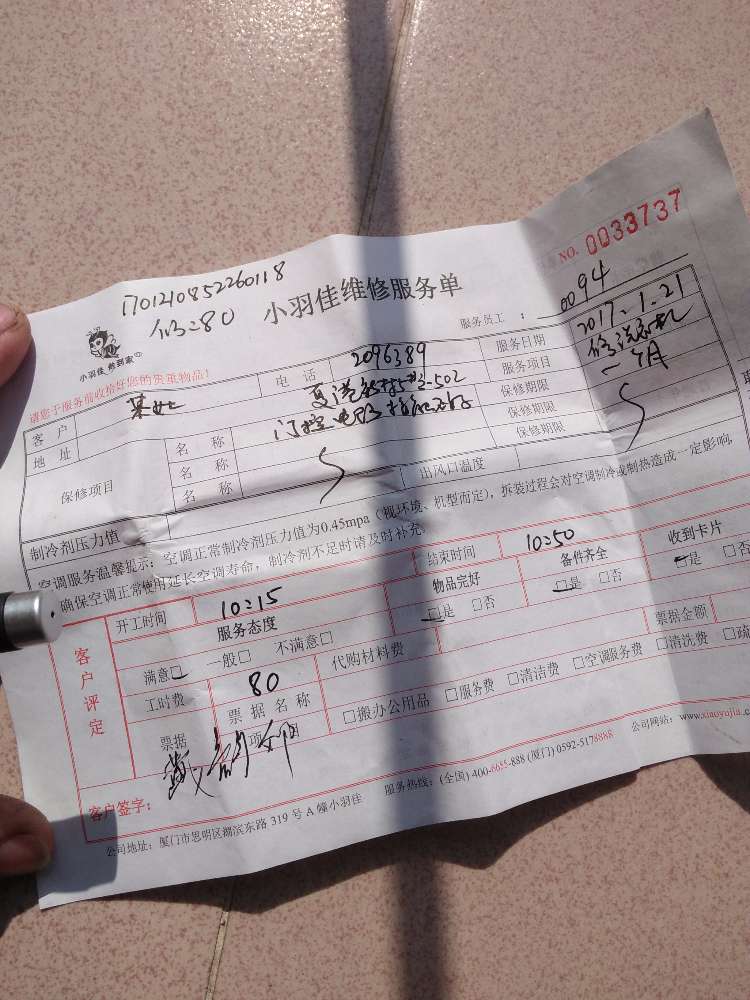 NO. 0033737
170121085226011 8
修=80
小羽佳维修服务单
服务员工：0094
小羽佳 帮到家
请您于服务前收拾好您的贵重物品！
客户 电话 2096389 服务日期 2017.1.21
地址 3-502 服务项目 修洗衣机
保修项目 名称 门控电路 保修期限 一个月
名称 保修期限
名称 保修期限
制冷剂压力值 出风口温度
空调服务温馨提示：空调正常制冷剂压力值为0.45mpa（视环境、机型而定），拆装过程会对空调制冷或制热造成一定影响，
确保空调正常使用延长空调寿命，制冷剂不足时请及时补充。
客户评定
开工时间 10:15 结束时间 10:50
服务态度 物品完好 备件齐全 收到卡片
满意□ 一般□ 不满意□ □是 □否 □是 □否 □是 □否
工时费 80 代购材料费 票据金额
票据 票据名称 项目 □搬办公用品 □服务费 □清洁费 □空调服务费 □清洗费 □疏
客户签字：
公司地址：厦门市思明区湖滨东路 319 号 A 幢小羽佳 服务热线：(全国) 400-6655-888 (厦门) 0592-5178988 公司网站：www.xiaoyujia.c